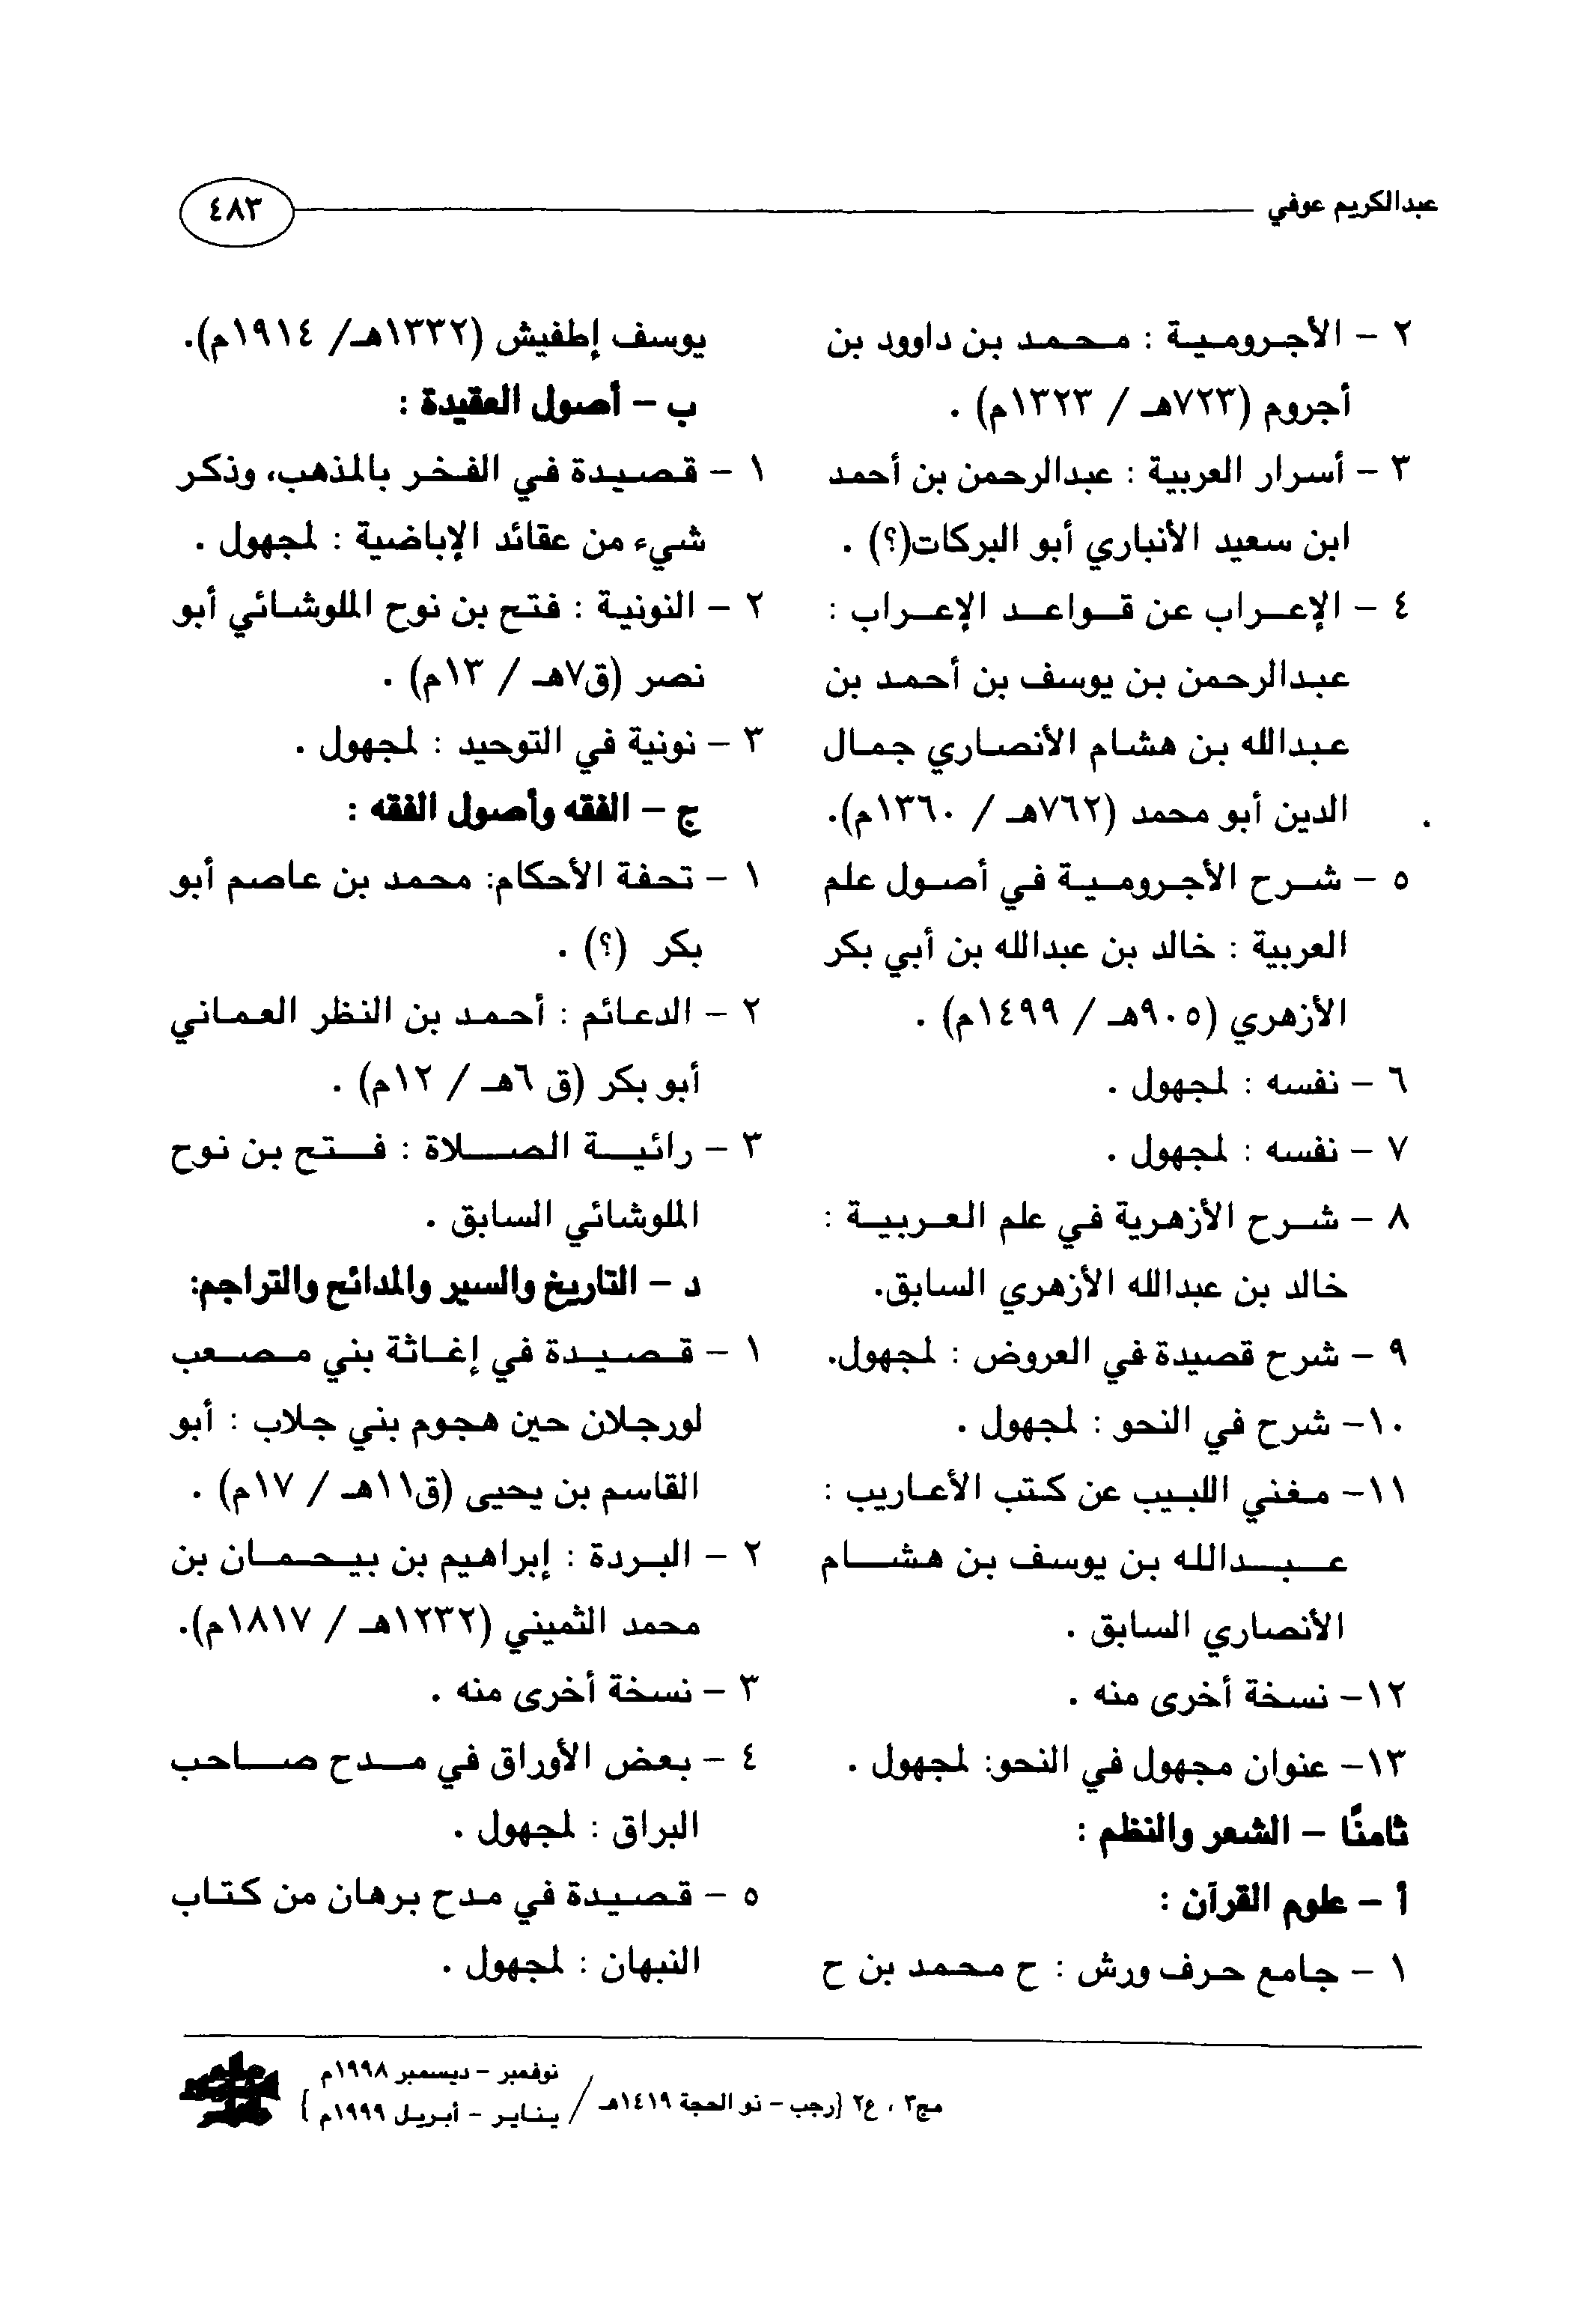 عبدالكريم عوفي
٤٨٣
٢ - الأجرومية : محمد بن داوود بن
أجروم (٧٢٣هـ / ١٣٢٣م) .
٣ - أسرار العربية : عبدالرحمن بن أحمد
ابن سعيد الأنباري أبو البركات(؟) .
٤ - الإعراب عن قواعد الإعراب :
عبدالرحمن بن يوسف بن أحمد بن
عبدالله بن هشام الأنصاري جمال
الدين أبو محمد (٧٦٢هـ / ١٣٦٠م).
٥ - شرح الأجرومية في أصول علم
العربية : خالد بن عبدالله بن أبي بكر
الأزهري (٩٠٥هـ / ١٤٩٩م) .
٦ - نفسه : لمجهول .
٧ - نفسه : لمجهول .
٨ - شرح الأزهرية في علم العربية :
خالد بن عبدالله الأزهري السابق.
٩ - شرح قصيدة في العروض : لمجهول.
١٠- شرح في النحو : لمجهول .
١١- مغني اللبيب عن كتب الأعاريب :
عبدالله بن يوسف بن هشام
الأنصاري السابق .
١٢- نسخة أخرى منه .
١٣- عنوان مجهول في النحو: لمجهول .
ثامنًا - الشعر والنظم :
أ - علوم القرآن :
١ - جامع حرف ورش : ح محمد بن ح
يوسف إطفيش (١٣٣٢هـ/ ١٩١٤م).
ب - أصول العقيدة :
١ - قصيدة في الفخر بالمذهب، وذكر
شيء من عقائد الإباضية : لمجهول .
٢ - النونية : فتح بن نوح الملوشائي أبو
نصر (ق٧هـ / ١٣م) .
٣ - نونية في التوحيد : لمجهول .
ج - الفقه وأصول الفقه :
١ - تحفة الأحكام: محمد بن عاصم أبو
بكر (؟) .
٢ - الدعائم : أحمد بن النظر العماني
أبو بكر (ق ٦هـ / ١٢م) .
٣ - رائية الصلاة : فتح بن نوح
الملوشائي السابق .
د - التاريخ والسير والمدائح والتراجم:
١ - قصيدة في إغاثة بني مصعب
لورجلان حين هجوم بني جلاب : أبو
القاسم بن يحيى (ق١١هـ / ١٧م) .
٢ - البردة : إبراهيم بن بيحمان بن
محمد الثميني (١٢٣٢هـ / ١٨١٧م).
٣ - نسخة أخرى منه .
٤ - بعض الأوراق في مدح صاحب
البراق : لمجهول .
٥ - قصيدة في مدح برهان من كتاب
النبهان : لمجهول .
مج٣ ، ع٢ [رجب - ذو الحجة ١٤١٩هـ /
نوفمبر - ديسمبر ١٩٩٨م
يناير - أبريل ١٩٩٩م ]